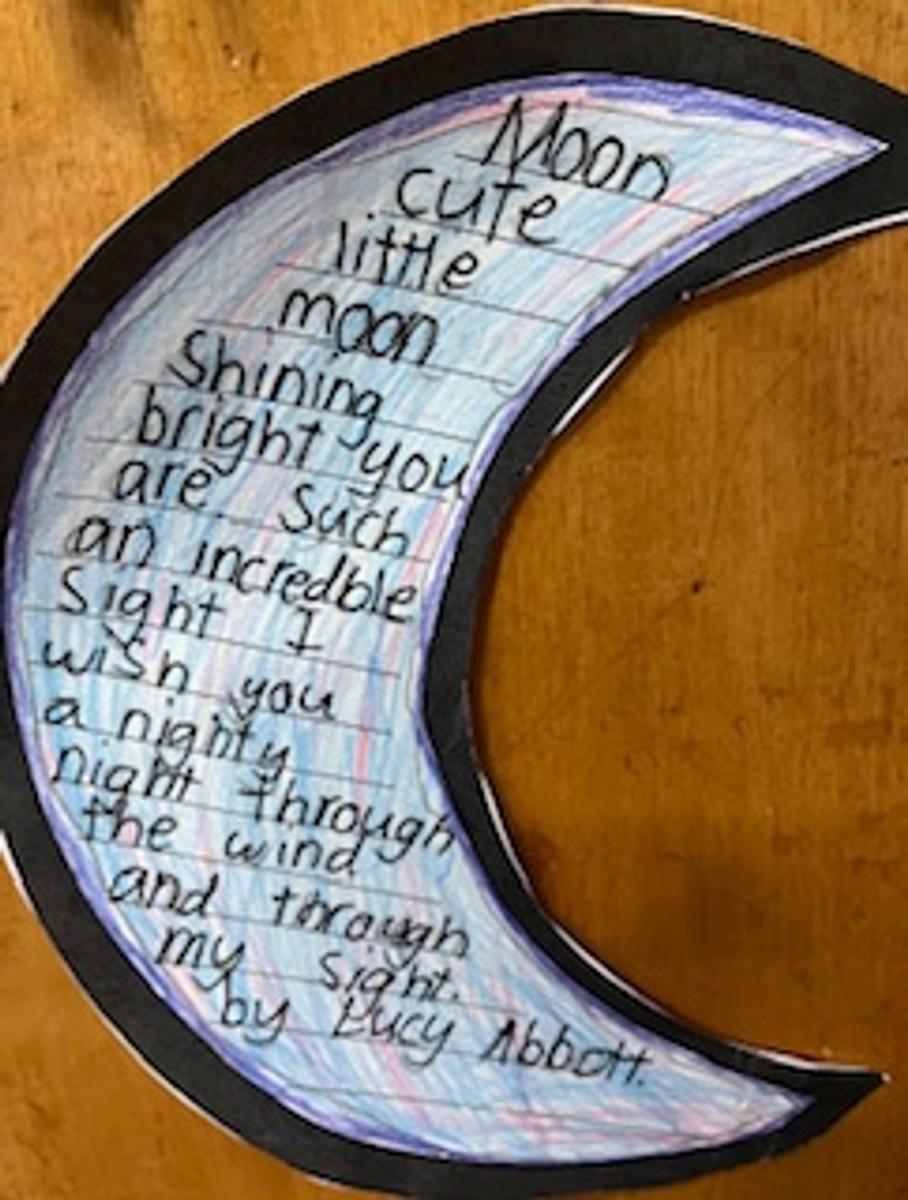 Moon
cute
little
moon
Shining
bright you
are such
an incredble
Sight I
wish you
a nighty
night through
the wind
and through
my Sight.
by Lucy Abbott.